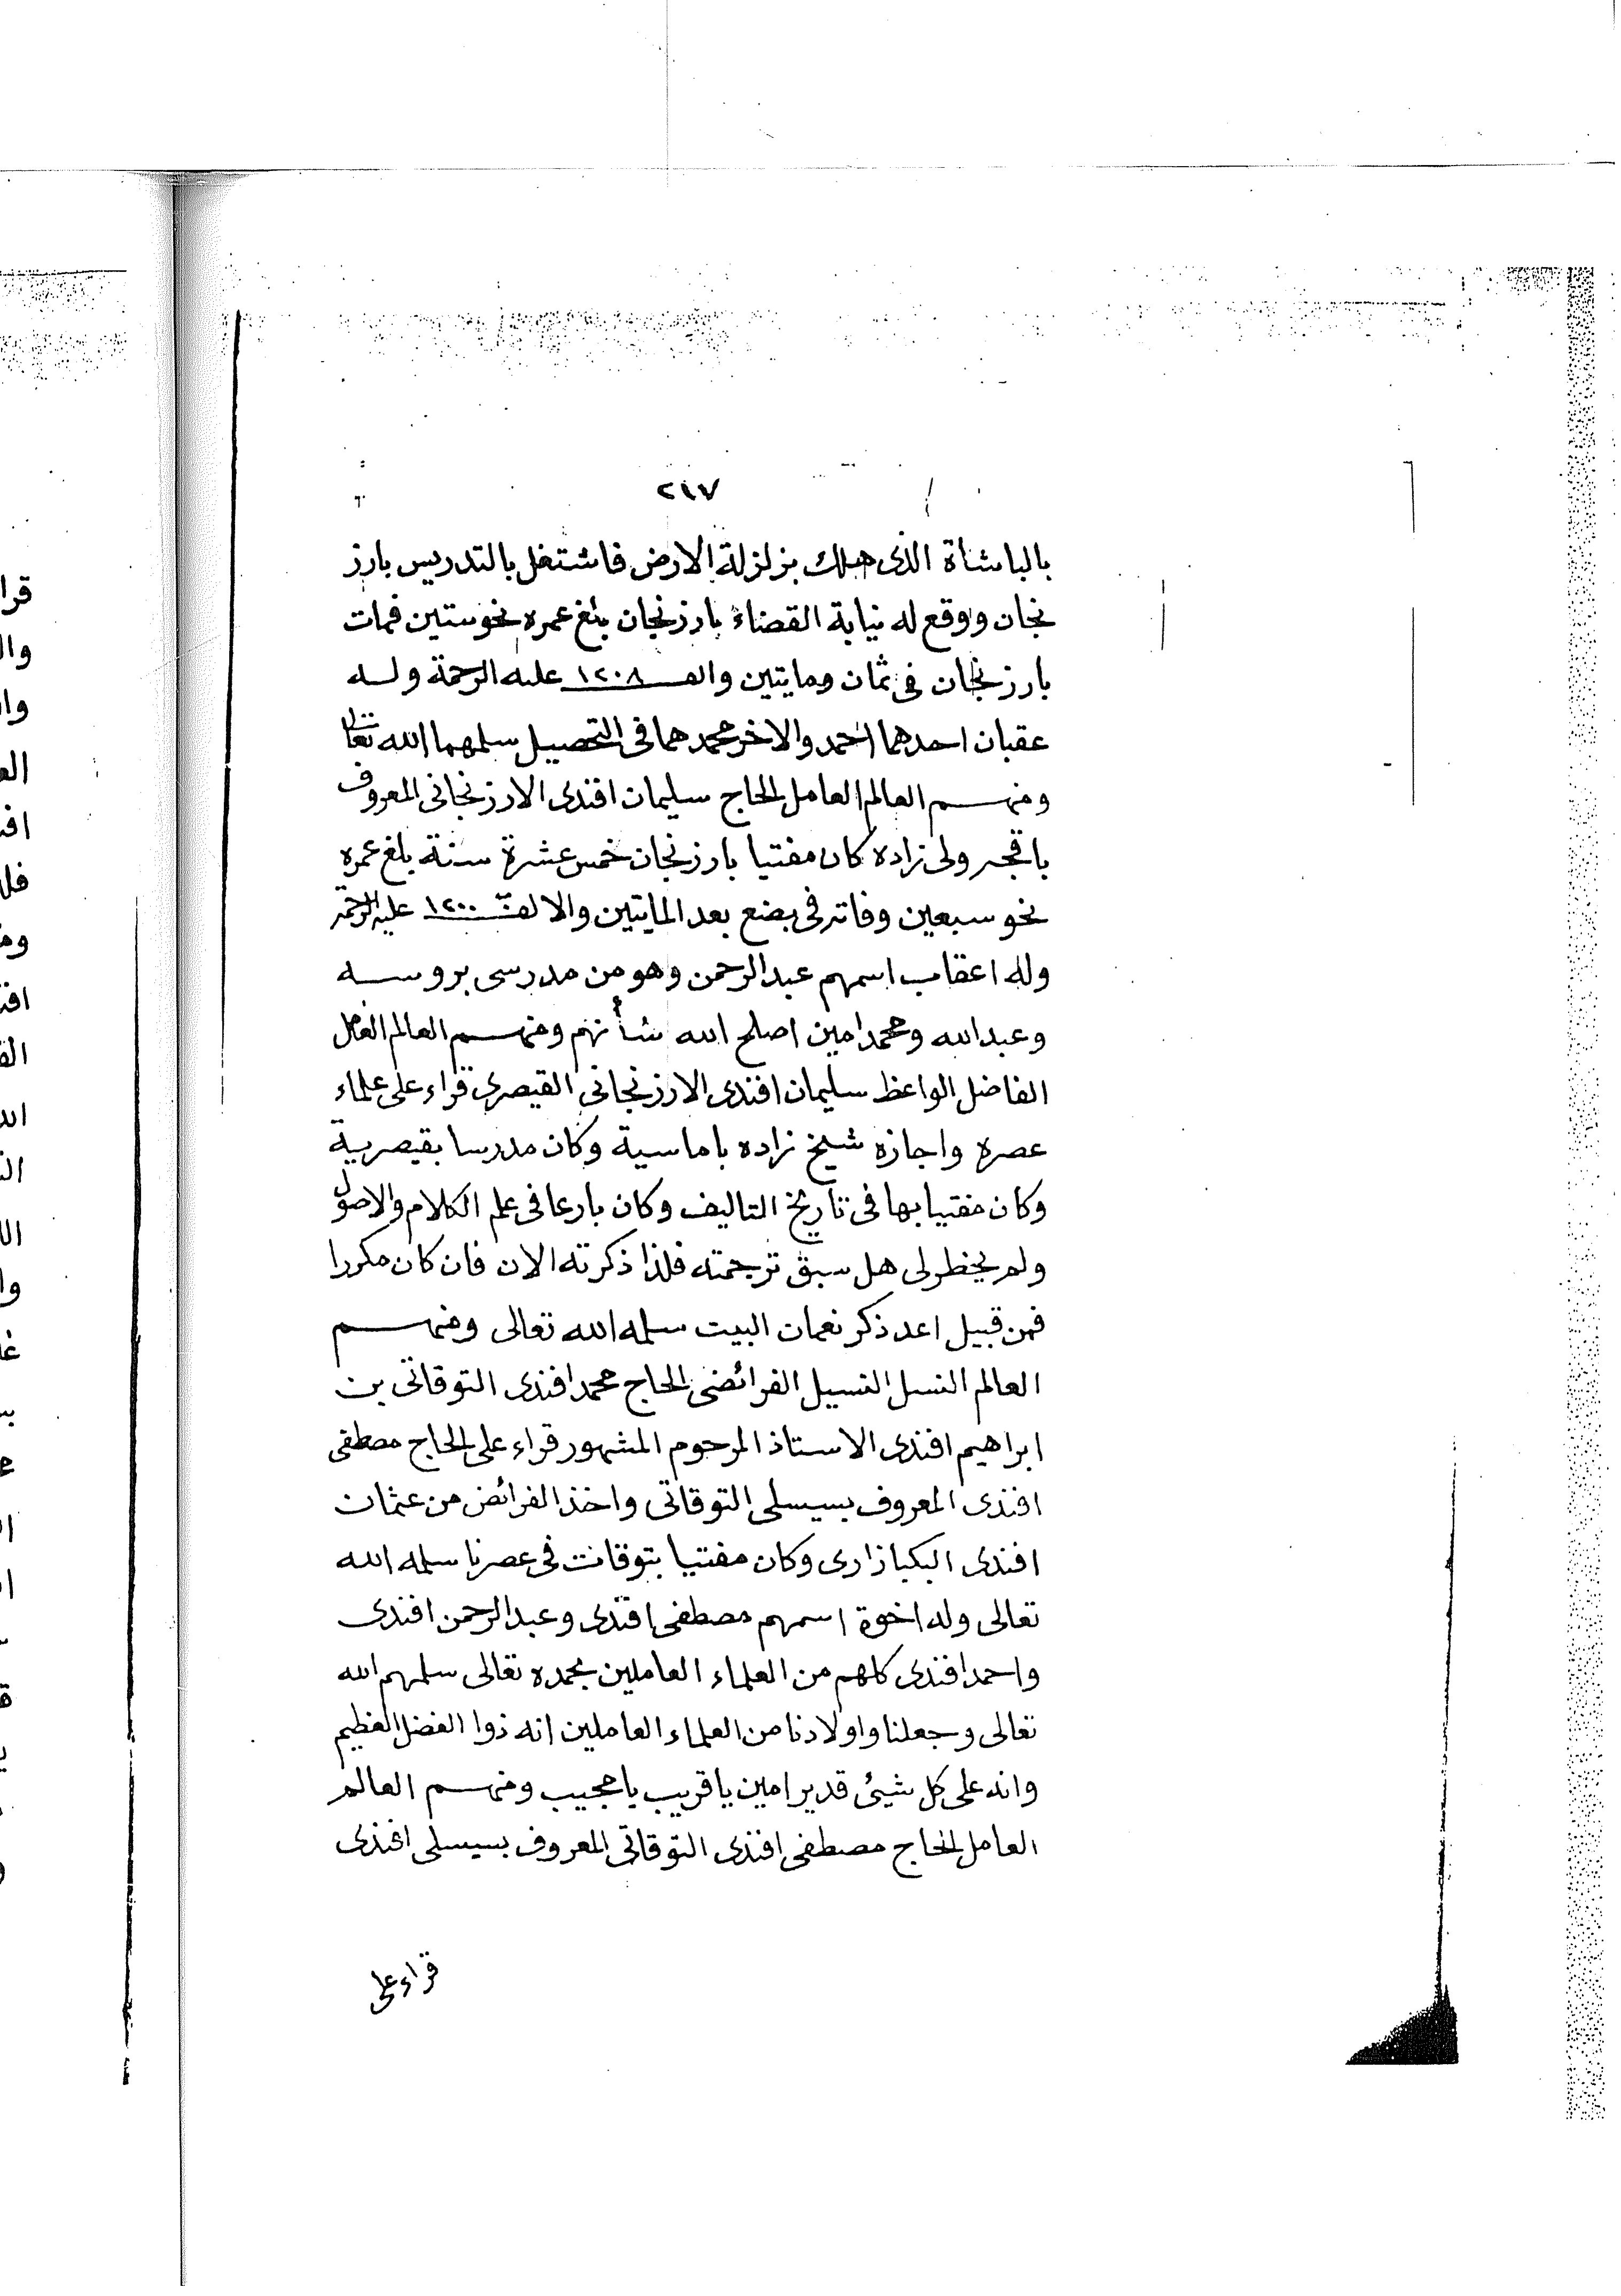 ٢١٧
بالباشأة الذى هلك بزلزلة الارض فاشتغل بالتدريس بارز
نجان ووقع له نيابة القضاء بارزنجان بلغ عمره نحو ستين فمات
بارزنجان فى ثمان ومايتين والف ١٢٠٨ عليه الرحمة وله
عقبان احدهما احمد والاخر محمد هما فى التحصيل سلمهما الله تعالى
ومنهم العالم العامل الحاج سليمان افندى الارزنجانى المعروف
باقجه ولى زاده كان مفتيا بارزنجان خمس عشرة سنة بلغ عمره
نحو سبعين وفاته فى بضع بعد المايتين والالف ١٢٠٠ عليه الرحمة
وله اعقاب اسمهم عبدالرحمن وهو من مدرسى بروسه
وعبدالله ومحمد امين اصلح الله شأنهم ومنهم العالم العامل
الفاضل الواعظ سليمان افندى الارزنجانى القيصرى قراء على علماء
عصره واجازه شيخ زاده باماسية وكان مدرسا بقيصرية
وكان مفتيا بها فى تاريخ التاليف وكان بارعا فى علم الكلام والاصول
ولم يخطر لى هل سبق ترجمته فلذا ذكرته الان فان كان مكررا
فمن قبيل اعد ذكر نعمان البيت سلمه الله تعالى ومنهم
العالم النسل النسيل الفرائضى الحاج محمد افندى التوقاتى بن
ابراهيم افندى الاستاذ المرحوم المشهور قراء على الحاج مصطفى
افندى المعروف بسيسلى التوقاتى واخذ الفرائض من عثمان
افندى البكبازارى وكان مفتيا بتوقات فى عصرنا سلمه الله
تعالى وله اخوة اسمهم مصطفى افندى وعبدالرحمن افندى
واحمد افندى كلهم من العلماء العاملين بحمده تعالى سلمهم الله
تعالى وجعلنا واولادنا من العلماء العاملين انه ذوا الفضل العظيم
وانه على كل شيئ قدير امين ياقريب يامجيب ومنهم العالم
العامل الحاج مصطفى افندى التوقاتى المعروف بسيسلى افندى
قراء على